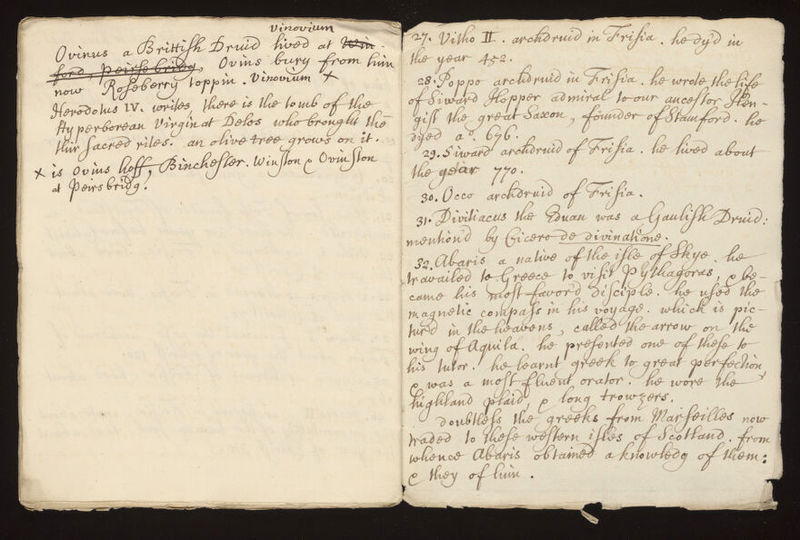 Vinovium
Ovinus a Brittish Druid lived at Win-
ford, Peirsebridg, Ovins bury from him
now Roseberry toppin. Vinovium ×
Herodotus IV. writes, there is the tomb of the
Hyperborean Virgin at Delos who brought the-
thir sacred rites. an olive tree grows on it.
× is Ovins hoff, Binchester. Winston & Ovinston
at Peirsbridg.
27. Vitho II. archdruid in Frisia. he dy'd in
the year 452.
28. Poppo archdruid in Frisia. he wrote the life
of Siward Hopper admiral to our ancestor Hen-
gist the great Saxon, founder of Stamford. he
dyed a°. 676.
29. Siward archdruid of Frisia. he lived about
the year 770.
30. Occo archdruid of Frisia.
31. Divitiacus the Eduan was a Gaulish Druid:
mention'd by Cicero de divinatione.
32. Abaris a native of the isle of Skye. he
travailed to Greece to visit Pythagoras, & be-
came his most favord disciple. he used the
magnetic compass in his voyage. which is pic-
tured in the heavens, called the arrow on the
wing of Aquila. he presented one of these to
his tutor. he learnt greek to great perfection
& was a most fluent orator. he wore the
highland plaid, & long trowzers.
doubtless the greeks from Marseilles now
traded to these western isles of Scotland. from
whence Abaris obtained a knowledg of them:
& they of him.